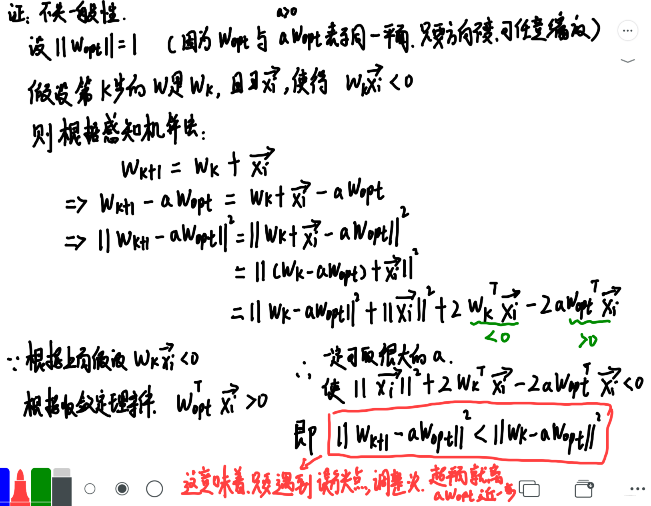 证:不失一般性.
设||Wopt||=1 (因为Wopt与aWopt表示同一平面.只要方向不变,可任意缩放)
a>0
假设第K步的W是Wk,且∃xi→,使得 Wkxi→<0
则根据感知机算法:
Wk+1 = Wk + xi→
=> Wk+1 - aWopt = Wk + xi→ - aWopt
=> ||Wk+1 - aWopt||² = ||Wk + xi→ - aWopt||²
= ||(Wk - aWopt) + xi→||²
= ||Wk - aWopt||² + ||xi→||² + 2WkT xi→ - 2aWoptT xi→
<0 >0
∵根据上面假设 Wkxi→<0
根据收敛定理条件. WoptT xi→ >0
∴ 一定可取很大的a.
使 ||xi→||² + 2WkT xi→ - 2aWoptT xi→ <0
即 ||Wk+1 - aWopt||² < ||Wk - aWopt||²
这意味着.只要遇到误分类点,调整一次.超平面就离
aWopt近一步